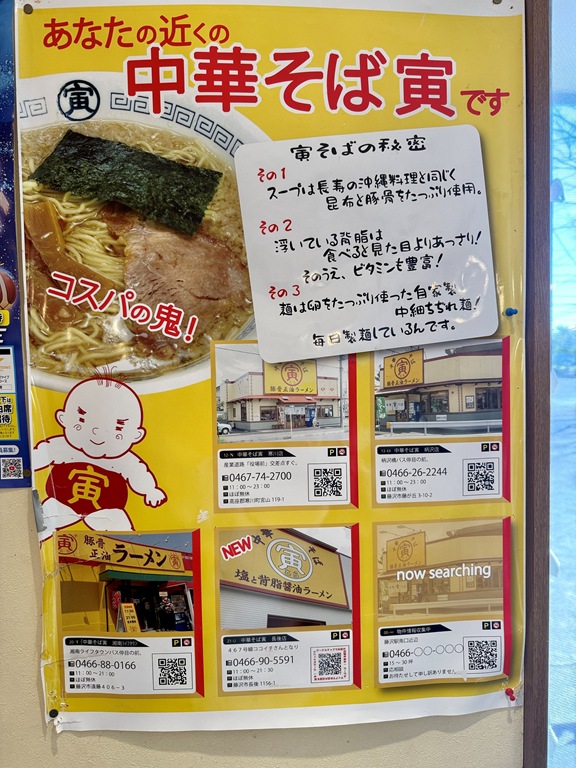 あなたの近くの
中華そば寅です
寅
寅そばの秘密
その1
スープは長寿の沖縄料理と同じく
昆布と豚骨をたっぷり使用。
その2
浮いている背脂は
食べると見た目よりあっさり!
そのうえ、ビタミンも豊富!
その3
麺は卵をたっぷり使った自家製
中細ちぢれ麺!
毎日製麺しているんです。
コスパの鬼!
寅
寅
豚骨正油ラーメン
中華そば寅 寒川店
P
産業道路「役場前」交差点すぐ。
0467-74-2700
11:00~23:00
ほぼ無休
高座郡寒川町宮山 119-1
中華そば寅 柄沢店
P
柄沢橋バス停目の前。
0466-26-2244
11:00~23:00
ほぼ無休
藤沢市藤が丘 3-10-2
寅 豚骨正油 ラーメン
中華そば寅
P
湘南ライフタウンバス停目の前。
0466-88-0166
11:00~21:00
ほぼ無休
藤沢市遠藤406-3
NEW
中華 寅 そば
塩と背脂醤油ラーメン
中華そば寅 長後店
P
467号線ココイチさんとなり
0466-90-5591
11:00~21:30
ほぼ無休
藤沢市長後 1156-1
now searching
物件情報収集中
P
藤沢駅南口近辺
0466-○○-○○○○
15~30坪
応相談
お待たせして申し訳ありません